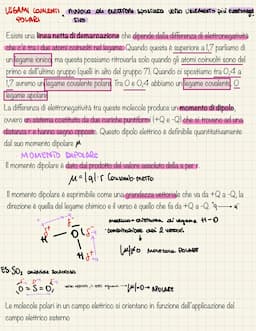 LEGAMI COVALENTI POLARI : NUVOLA DI ELETTRONI SPOSTATA VERSO L'ELEMENTO PIÙ ELETTRONEGATIVO
Esiste una linea netta di demarcazione che dipende della differenza di elettronegatività
che c'è tra i due atomi coinvolti nel legame. Quando questa è superiore a 1,7 parliamo di
un legame ionico, ma questa possiamo ritrovarla solo quando gli atomi coinvolti sono del
primo e dell'ultimo gruppo (quelli in alto del gruppo 7). Quando ci spostiamo tra 0,4 a
1,7 avremo un legame covalente polare. Tra 0 e 0,4 abbiamo un legame covalente. O
legame apolare.
La differenza di elettronegatività tra queste molecole produce un momento di dipolo,
ovvero un sistema costituito da due cariche puntiformi (+Q e -Q) che si trovano ad una
distanza r e hanno segno opposto. Questo dipolo elettrico è definibile quantitativamente
dal suo momento dipolare μ
MOMENTO DIPOLARE
Il momento dipolare è dato dal prodotto del valore assoluto della q per r.
μ = |q| · r (Coulombo · metro)
Il momento dipolare è esprimibile come una grandezza vettoriale che va da +Q a -Q, la
direzione è quella del legame chimico e il verso è quello che fa da +Q a -Q.
H - O
H
|μ| ≠ 0 MOLECOLA POLARE
ES. SO₂
O = S = O
|μ| = 0 → APOLARE
Le molecole polari in un campo elettrico si orientano in funzione dell'applicazione del
campo elettrico esterno